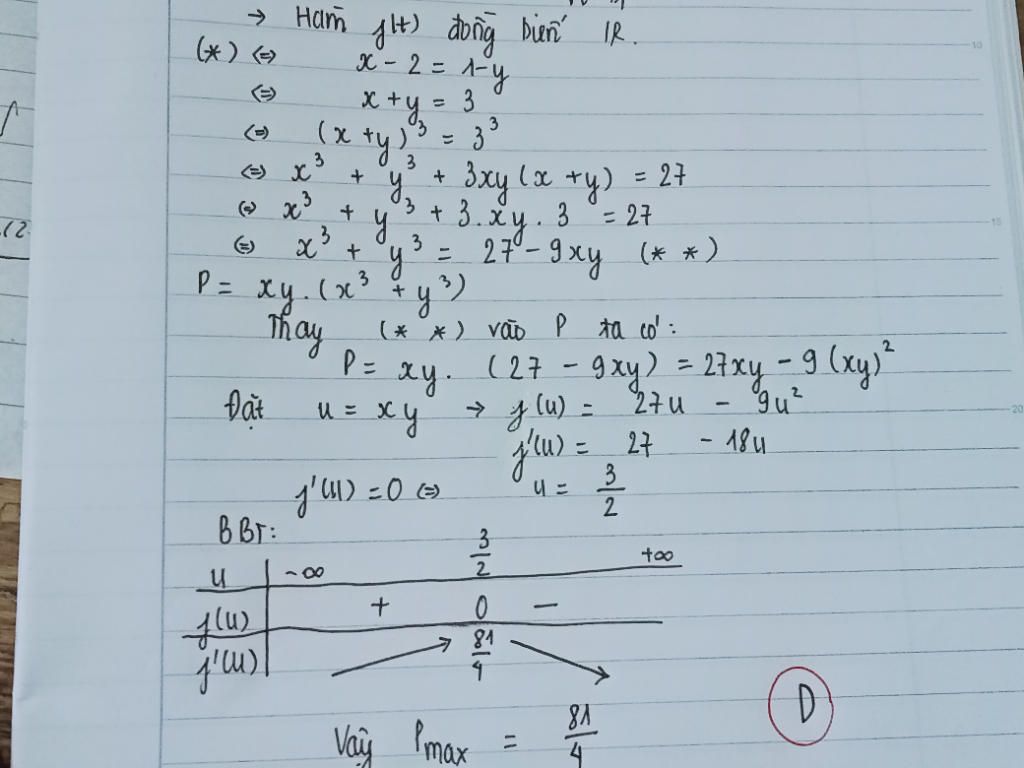 → Hàm f(t) đồng biến IR.
(*) ⇔ x - 2 = 1 - y
⇔ x + y = 3
⇔ (x + y)³ = 3³
⇔ x³ + y³ + 3xy(x + y) = 27
⇔ x³ + y³ + 3.xy.3 = 27
⇔ x³ + y³ = 27 - 9xy (* *)
P = xy.(x³ + y³)
Thay (* *) vào P ta có:
P = xy. (27 - 9xy) = 27xy - 9(xy)²
Đặt u = xy → f(u) = 27u - 9u²
f'(u) = 27 - 18u
f'(u) = 0 ⇔ u = 3/2
BBT:
u -∞ 3/2 +∞
f(u) + 0 -
f'(u) 81/4
Vậy Pmax = 81/4
D
12
10
15
20